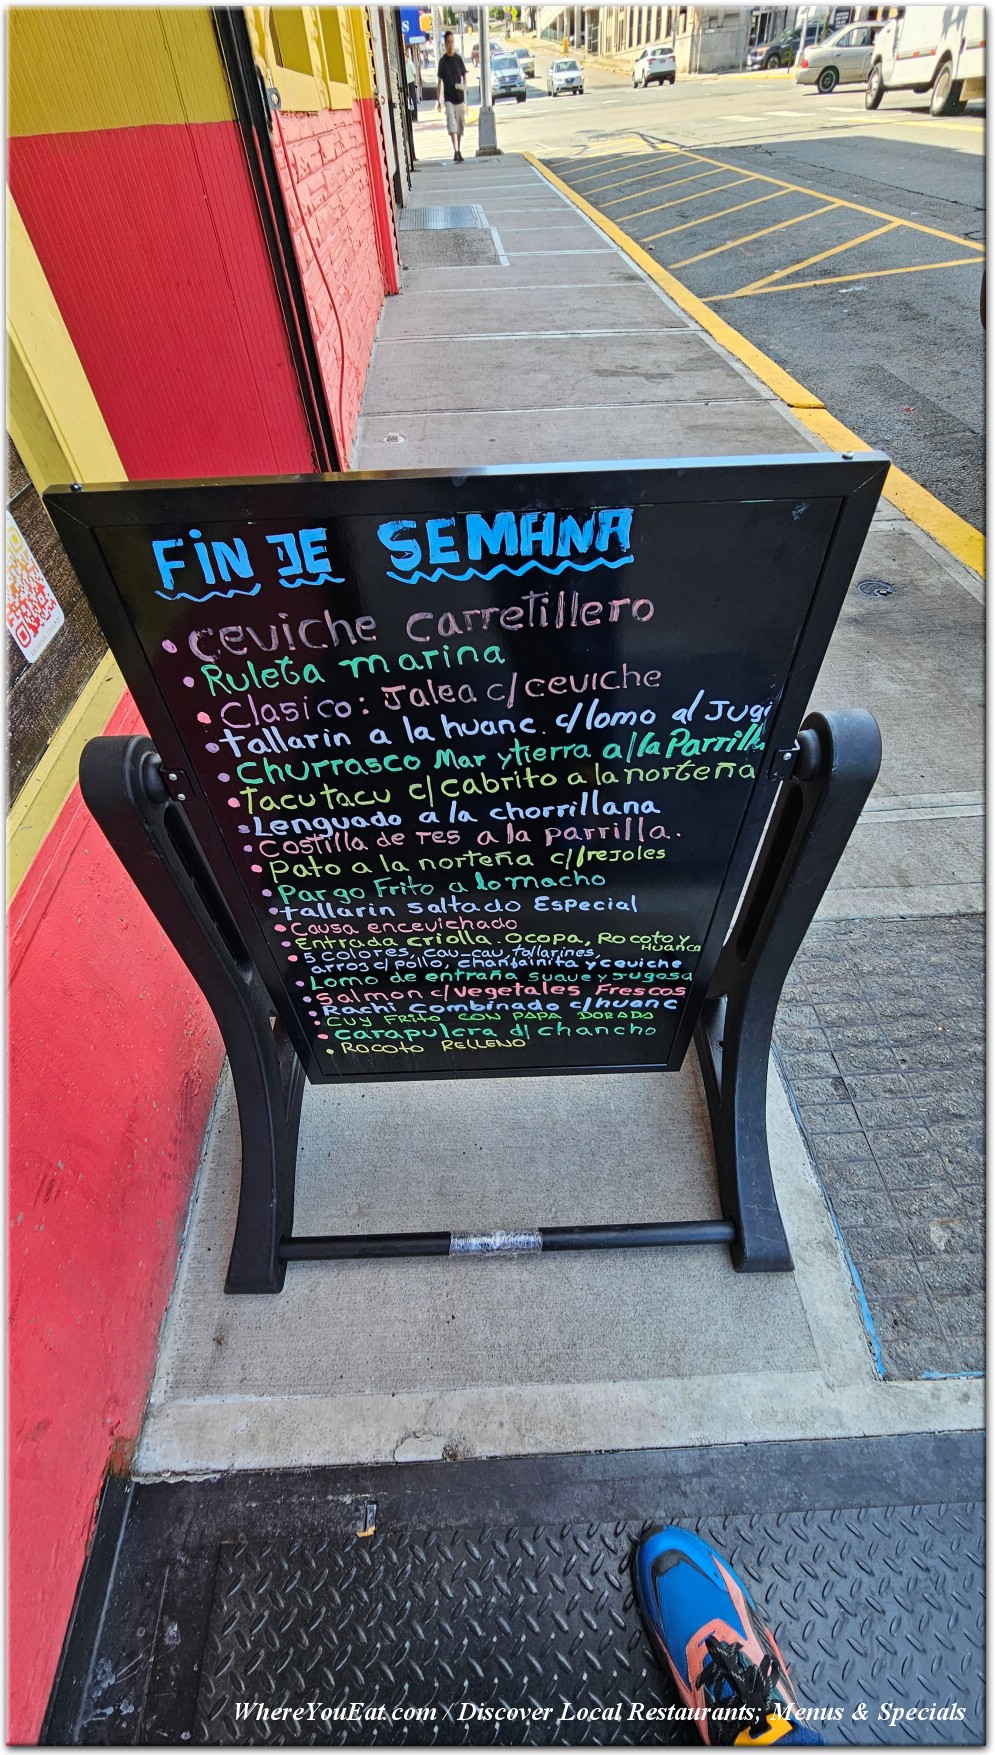 FIN DE SEMANA
• ceviche carretillero
• Ruleta marina
• Clasico: Jalea c/ceviche
• tallarin a la huanc. c/lomo al Jugo
• Churrasco Mar y tierra a/la Parrilla
• Tacu tacu c/ cabrito a la norteña
• Lenguado a la chorrillana
• costilla de res a la parrilla.
• Pato a la norteña c/frejoles
• Pargo Frito a lo macho
• tallarin saltado Especial
• Causa encevichado
• Entrada criolla. Ocopa, Rocoto y
Huanca
• 5 colores, cau-cau, tallarines,
arros c/pollo, chanfainita y ceviche
• Lomo de entraña suave y Jugosa
• Salmon c/vegetales Frescos
• Rachi Combinado c/huanc
• CUY FRITO CON PAPA DORADA
• carapulcra d/ chancho
• ROCOTO RELLENO
WhereYouEat.com / Discover Local Restaurants; Menus & Specials